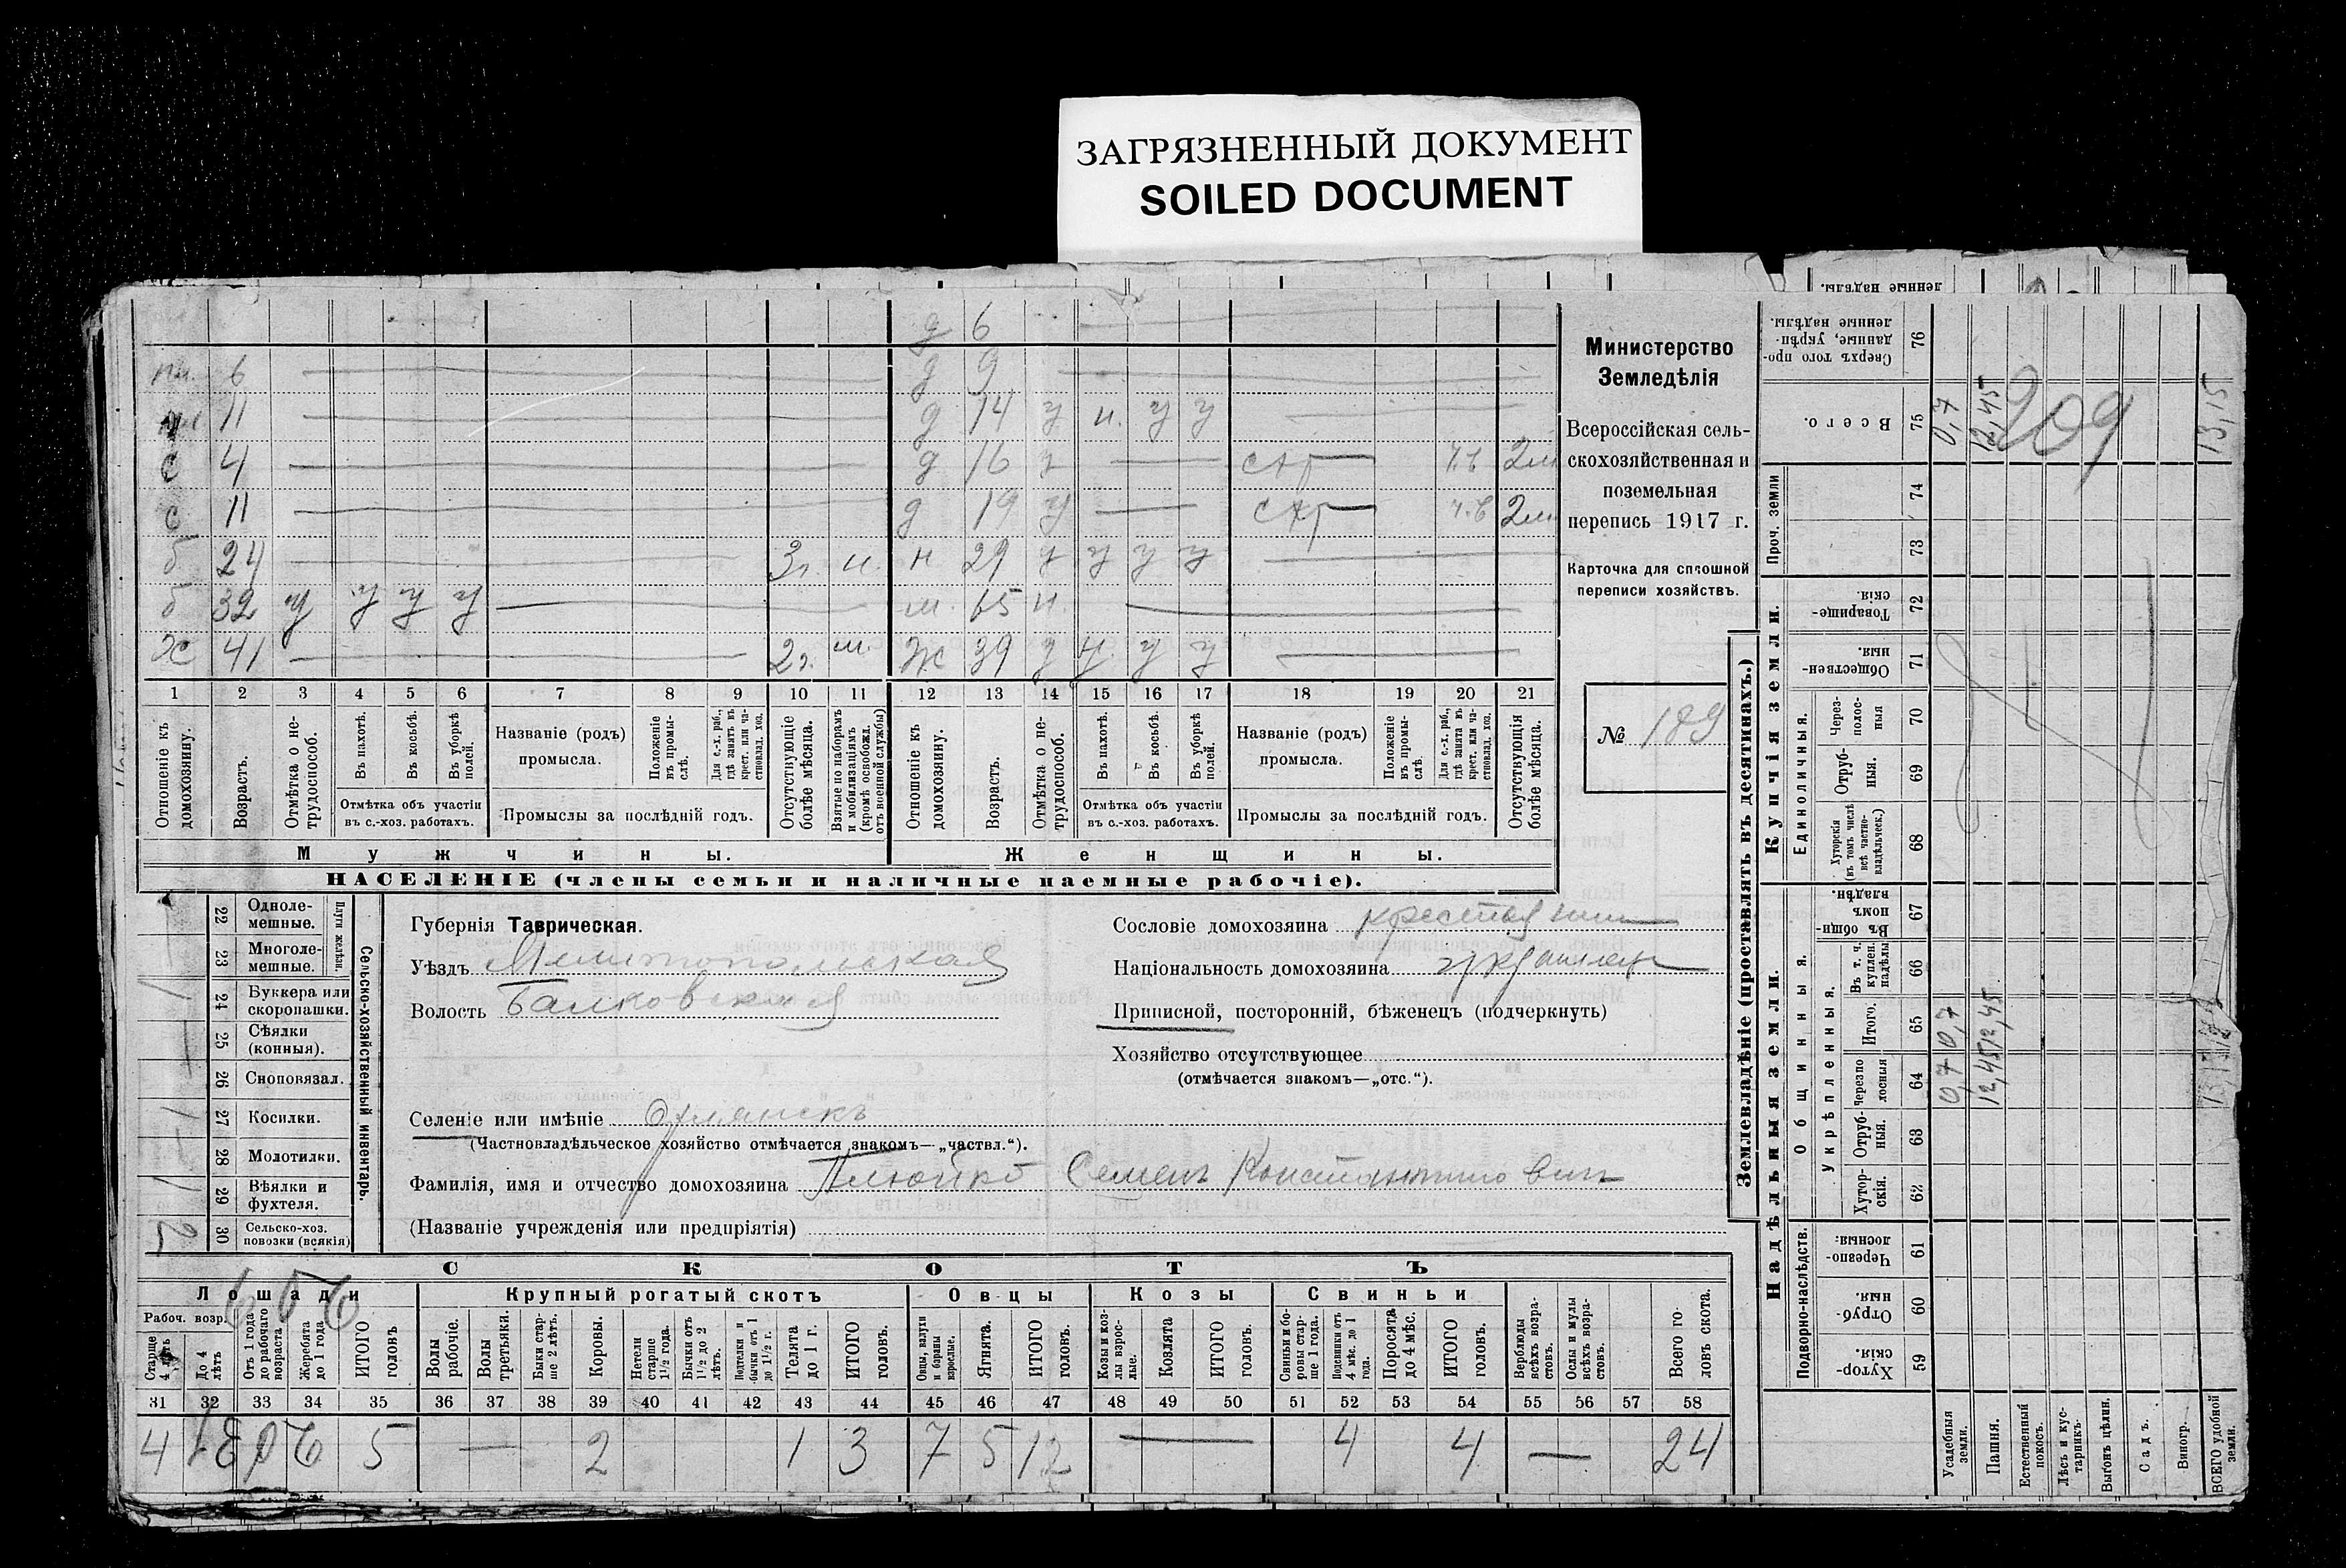 ЗАГРЯЗНЕННЫЙ ДОКУМЕНТ
SOILED DOCUMENT
д 6
6 д 9
11 д 14 у н. у у
с 4 д 16
с 11 д 19 у
б 24 3г. н. 29 у у у
б 32 у у у у 65 н.
Ж 41 2г. Ж 39 у у
1 2 3 4 5 6 7 8 9 10 11 12 13 14 15 16 17 18 19 20 21
Отношеніе къ домохозяину.
Возрастъ.
Отмѣтка о нетрудоспособ.
Въ пахотѣ.
Въ косьбѣ.
Въ уборкѣ полей.
Отмѣтка объ участіи въ с.-хоз. работахъ.
Названіе (родъ) промысла.
Положеніе въ промыслѣ.
Для с.-х. раб., гдѣ занятъ въ крест. или частновлад. хоз.
Промыслы за послѣдній годъ.
Отсутствующіе болѣе мѣсяца.
Взятые по наборамъ и мобилизаціямъ (кромѣ освобожд. отъ военной службы)
Отношеніе къ домохозяину.
Возрастъ.
Отмѣтка о нетрудоспособ.
Въ пахотѣ.
Въ косьбѣ.
Въ уборкѣ полей.
Отмѣтка объ участіи въ с.-хоз. работахъ.
Названіе (родъ) промысла.
Положеніе въ промыслѣ.
Для с.-х. раб., гдѣ занята въ крест. или частновлад. хоз.
Промыслы за послѣдній годъ.
Отсутствующія болѣе мѣсяца.
Мужчины. Женщины.
НАСЕЛЕНІЕ (члены семьи и наличные наемные рабочіе).
Министерство
Земледѣлія
Всероссійская сель-
скохозяйственная и
поземельная
перепись 1917 г.
Карточка для сплошной
переписи хозяйствъ.
№ 189
22 Однолемешные.
23 Многолемешные.
Плуги желѣзн.
24 Буккера или скоропашки. 1
25 Сѣялки (конныя).
26 Сноповязал.
27 Косилки. 1
28 Молотилки.
29 Вѣялки и фухтеля. 1
30 Сельско-хоз. повозки (всякія) 2
Сельско-хозяйственный инвентарь
Губернія Таврическая.
Уѣздъ Мелитопольская
Волость Балковская
Селеніе или имѣніе
(Частновладѣльческое хозяйство отмѣчается знакомъ—„частвл.“).
Фамилія, имя и отчество домохозяина Плюйко Семенъ Константинович
(Названіе учрежденія или предпріятія)
Сословіе домохозяина
Національность домохозяина
Приписной, посторонній, бѣженецъ (подчеркнуть)
Хозяйство отсутствующее
(отмѣчается знакомъ—„отс.“).
СКОТЪ
Лошади Крупный рогатый скотъ Овцы Козы Свиньи
Рабоч. возр.
Старше 4 лѣтъ
До 4 лѣтъ
Отъ 1 года до рабочаго возраста
Жеребята до 1 года
ИТОГО головъ
Волы рабочіе.
Волы третьяки.
Быки старше 2 лѣтъ.
Коровы.
Нетели старше 1½ года.
Бычки отъ 1½ до 2 лѣтъ.
Подтелки и бычки отъ 1 до 1½ г.
Телята до 1 г.
ИТОГО головъ.
Овцы, валухи и бараны взрослые.
Ягнята.
ИТОГО головъ.
Козы и козлы взрослые.
Козлята
ИТОГО головъ.
Свиньи и боровы старше 1 года.
Подсвинки отъ 4 мѣс. до 1 года.
Поросята до 4 мѣс.
ИТОГО головъ.
Верблюды всѣхъ возрастовъ.
Ослы и мулы всѣхъ возрастовъ.
Всего головъ скота.
31 32 33 34 35 36 37 38 39 40 41 42 43 44 45 46 47 48 49 50 51 52 53 54 55 56 57 58
4 5 — 2 1 3 7 5 12 — 4 4 — 24
Землевладѣніе (проставлять въ десятинахъ.)
Надѣльныя земли. Купчія земли.
Подворно-наслѣдств.
Общинныя.
Укрѣпленныя.
Единоличныя.
Проч. земли
59 Хуторскія
60 Отрубныя.
61 Черезполосныя.
62 Хуторскія.
63 Отрубныя.
64 Черезполосныя 0,7 12,45
65 Итого. 0,7 12,45
66 Въ т. ч. куплен. надѣлы
67 Въ общинномъ владѣн.
68 Хуторскія (въ томъ числѣ всѣ частновладѣльческ.)
69 Отрубныя.
70 Черезполосныя
71 Общественныя.
72 Товарищескія.
73
74
75 Всего. 0,7 12,45 13,15
76 Сверхъ того проданные, укрѣпленные надѣлы.
209
Усадебныя земли.
Пашня.
Естественный покосъ.
Лѣсъ и кустарникъ.
Выгонъ цѣлин.
Садъ.
Виногр.
ВСЕГО удобной земли.